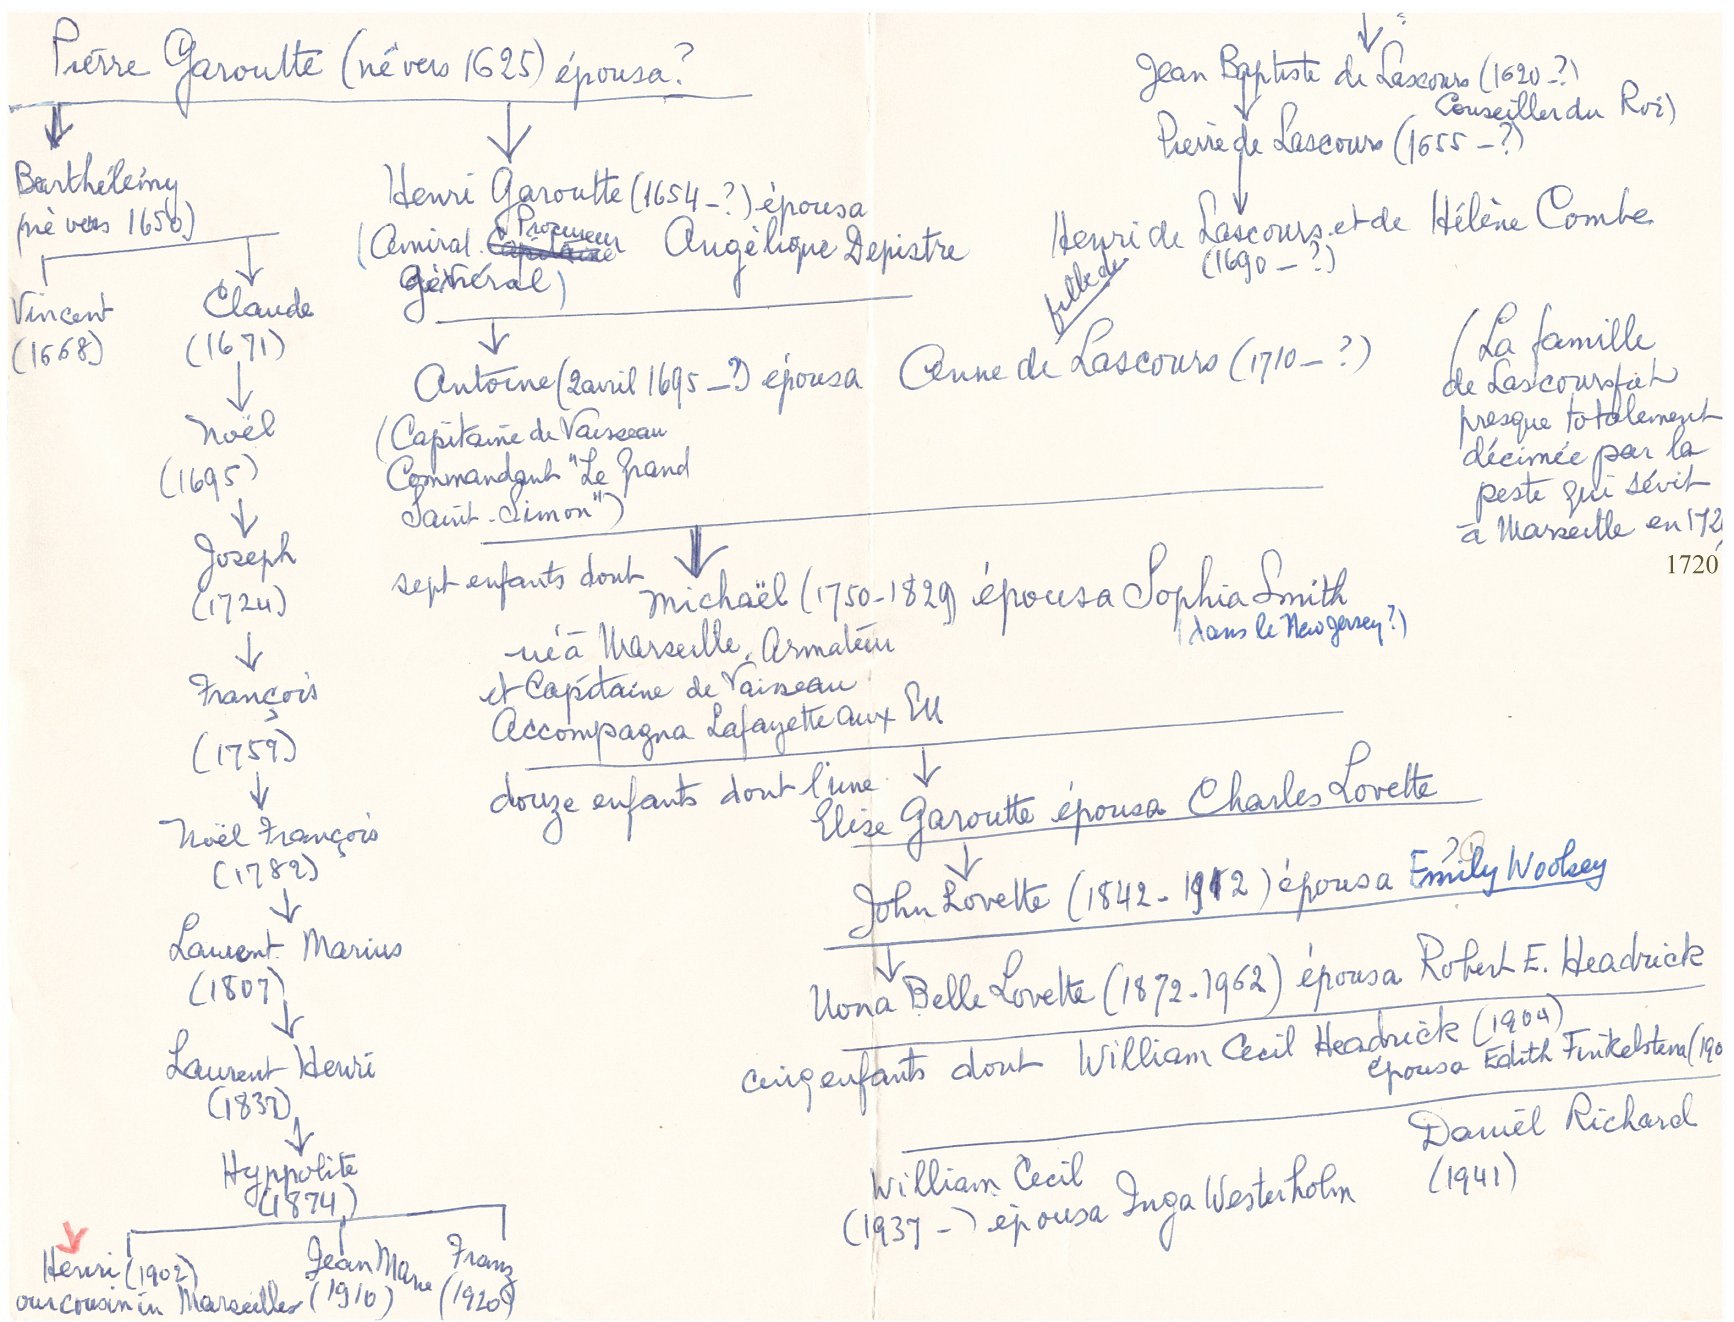 Pierre Garoutte (né vers 1625) épousa?
Barthélémy
(né vers 1650)
Vincent
(1668)
Claude
(1671)
Noël
(1695)
Joseph
(1724)
François
(1759)
Noël François
(1782)
Laurent Marius
(1807)
Laurent Henri
(1837)
Hyppolite
(1874)
Henri (1902)
our cousin in Marseilles
Jean Marie
(1910)
Franz
(1920)
Henri Garoutte (1654-?) épousa
Procureur
(Amiral. Capitaine Angélique Depistre
général)
Antoine (2 avril 1695-?) épousa Anne de Lascours (1710-?)
(Capitaine de Vaisseau
Commandant "Le Grand
Saint-Simon")
sept enfants dont
Michaël (1750-1829) épousa Sophia Smith
(dans le New Jersey?)
né à Marseille. Armateur
et Capitaine de Vaisseau
Accompagna Lafayette aux EU
douze enfants dont l'une
Elise Garoutte épousa Charles Lovette
John Lovette (1842-1912) épousa Emily Woolsey
?
Nona Belle Lovette (1872-1962) épousa Robert E. Headrick
cinq enfants dont William Cecil Headrick (1904)
épousa Edith Finkelstena (190
William Cecil
(1937-) épousa Inga Westerholm
Daniel Richard
(1941)
?
Jean Baptiste de Lascours (1620-?)
Conseiller du Roi)
Pierre de Lascours (1655-?)
Henri de Lascours et de Hélène Combe
(1690-?)
fille de
(La famille
de Lascours fut
presque totalement
décimée par la
peste qui sévit
à Marseille en 172
1720